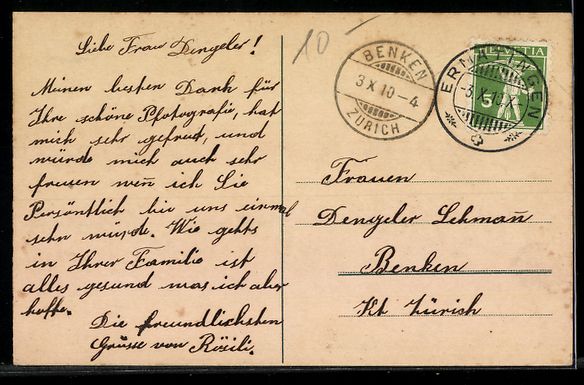 Liebe Frau Dengeler!
Meinen besten Dank für
Ihre schöne Pfotografie, hat
mich sehr gefreut, und
würde mich auch sehr
freuen wen̄ ich Sie
Persöntlich bie uns einmal
sehn würde. Wie gehts
in Ihrer Familie ist
alles gesund was ich aber
hoffe.
Die freundlichsten
Grüsse von Röseli.
10
BENKEN
3 X 10-4
ZÜRICH
ERMATINGEN
3. X. 10. X
HELVETIA
5
Frauen
Dengeler Lehman̄
Benken
Kt Zürich